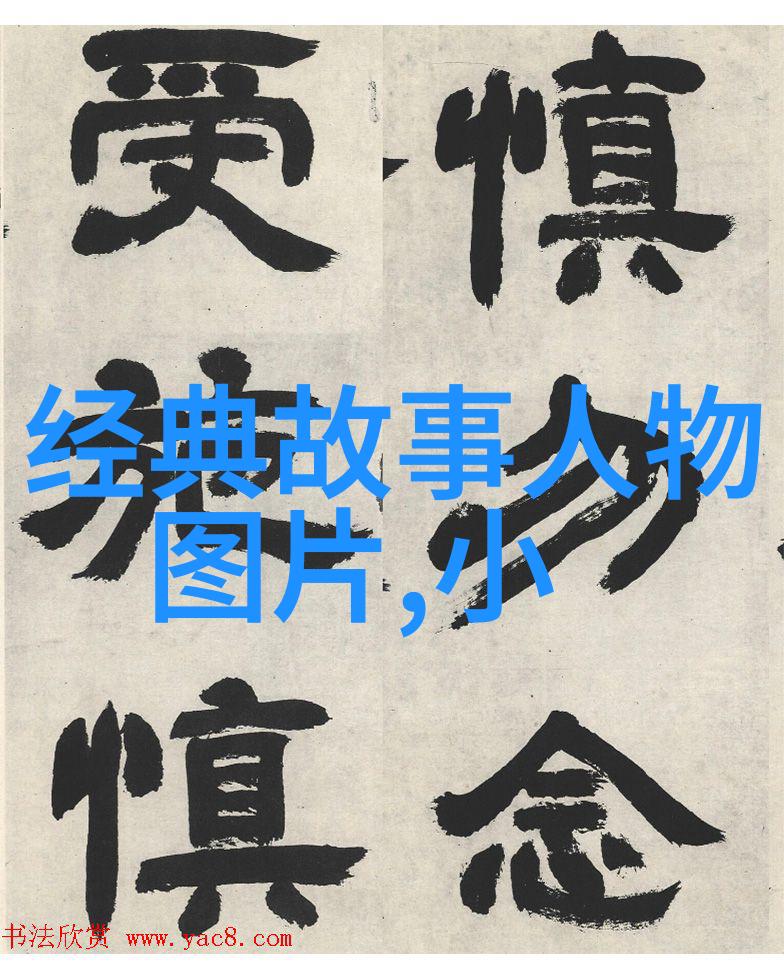 慎勿念
受施慎
经典故事人物
图片,小
书法欣赏 www.yac8.com